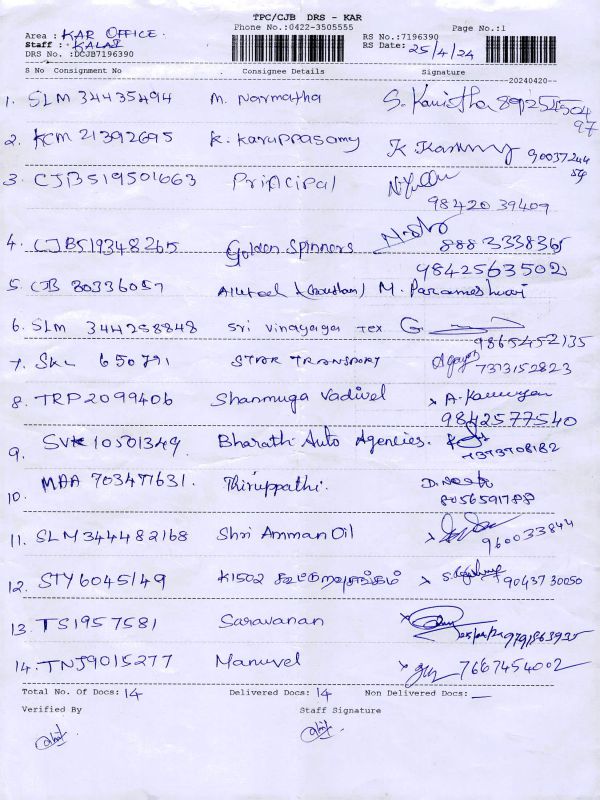 TPC/CJB DRS - KAR
Area : KAR OFFICE. Phone No.:0422-3505555 Page No.:1
Staff : KALAI RS No.:7196390
DRS No. :DCJB7196390 RS Date: 25/4/24
S No Consignment No Consignee Details Signature
20240420--
1. SLM 34435494 M. Narmatha S. Kavistha 89254504
97
2. KCM 21392695 K. Karuppasamy K 90037244
3. CJB519501663 Principal
98420 39409
4. CJB519348265 Golden Spinners 8883333836
9842563502
5. CJB 80336057 M. Parameshwari
6. SLM 344258848 Sri Vinayaga Tex G
9865452135
7. SKL 650791 STAR TRANSPORT 7373152823
8. TRP2099406 Shanmuga Vadivel A.
9842577540
9. SVK 10501349 Bharathi Auto Agencies.
7373708182
10. MAA 703477631. Thiruppathi.
8056591788
11. SLM344482168 Shri Amman Oil 960033844
12. STY6045149 K1502 S. 90437 30050
13. TS1957581 Saravanan
14. TNJ9015277 Manuvel 7667454002
Total No. Of Docs: 14 Delivered Docs: 14 Non Delivered Docs: —
Verified By Staff Signature